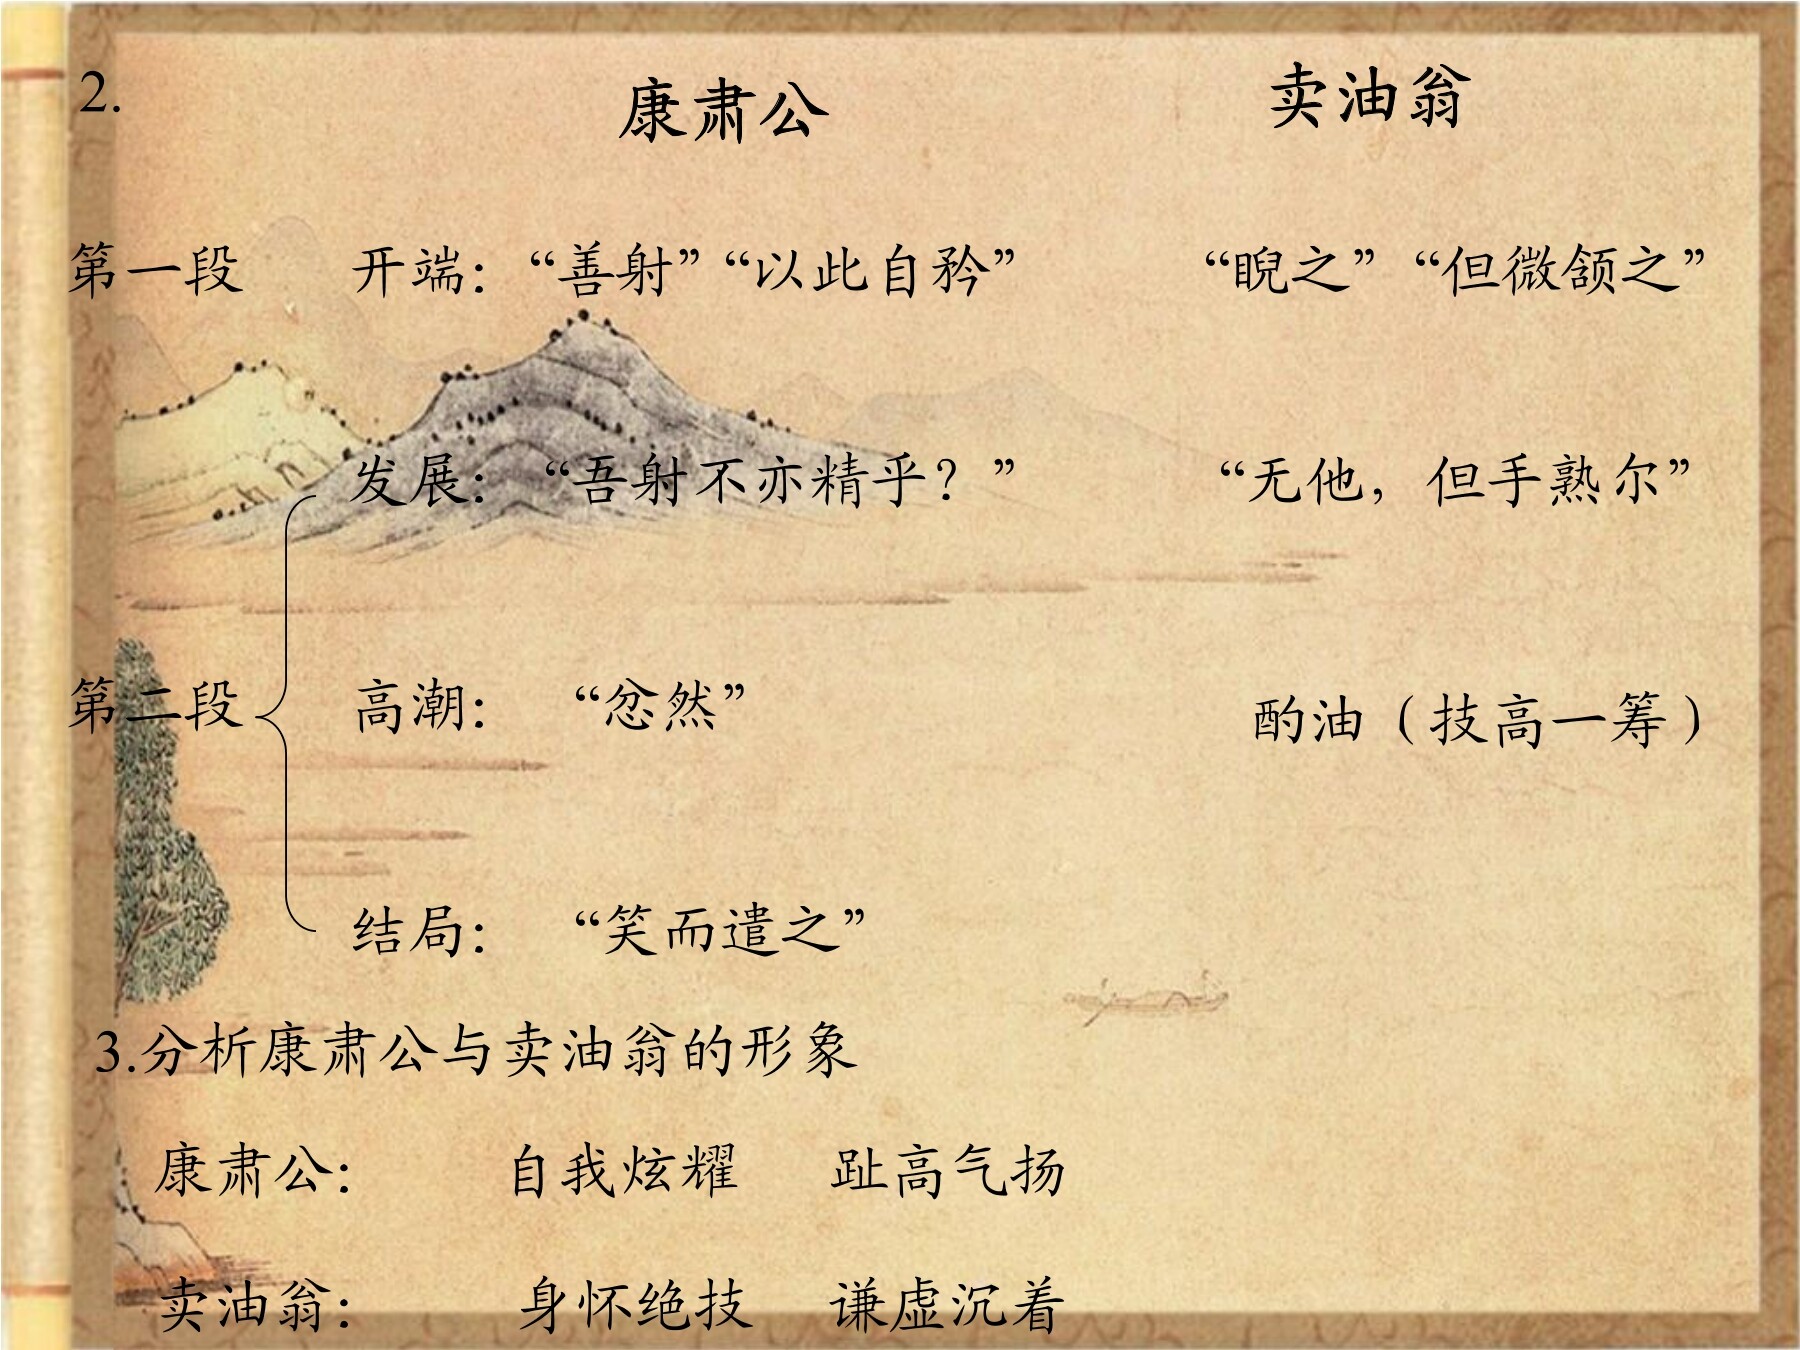 2. 康肃公 卖油翁
第一段 开端：“善射”“以此自矜” “睨之”“但微颔之”
发展：“吾射不亦精乎？” “无他，但手熟尔”
第二段 高潮： “忿然” 酌油（技高一筹）
结局： “笑而遣之”
3.分析康肃公与卖油翁的形象
康肃公： 自我炫耀 趾高气扬
卖油翁： 身怀绝技 谦虚沉着